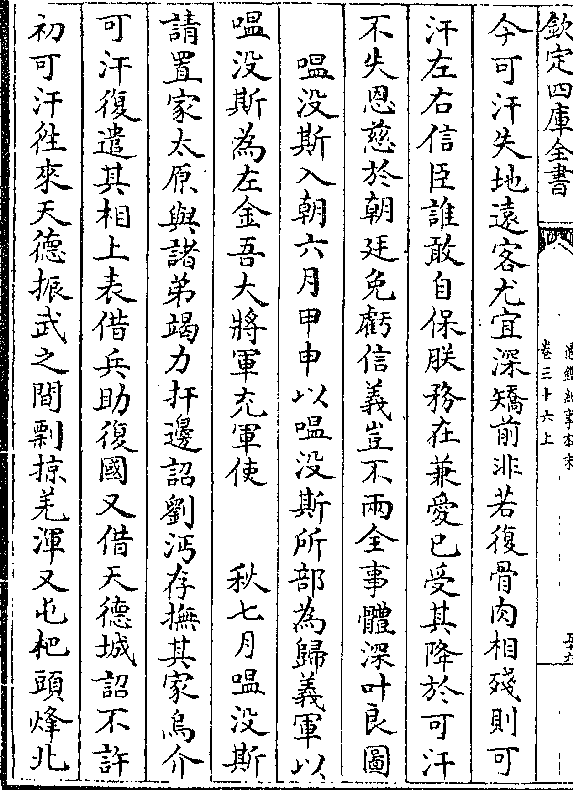 欽定四庫全書
通鑑紀事本末
卷三十六上
今可汗失地遠客尤宜深矯前非若復骨肉相殘則可
汗左右信臣誰敢自保朕務在兼愛已受其降於可汗
不失恩慈於朝廷免虧信義豈不兩全事體深叶良圖
嗢没斯入朝六月甲申以嗢没斯所部為歸義軍以
嗢没斯為左金吾大將軍充軍使　秋七月嗢没斯
請置家太原與諸弟竭力扞邊詔劉沔存撫其家烏介
可汗復遣其相上表借兵助復國又借天德城詔不許
初可汗徃來天德振武之間剽掠羌渾又屯杷頭烽北